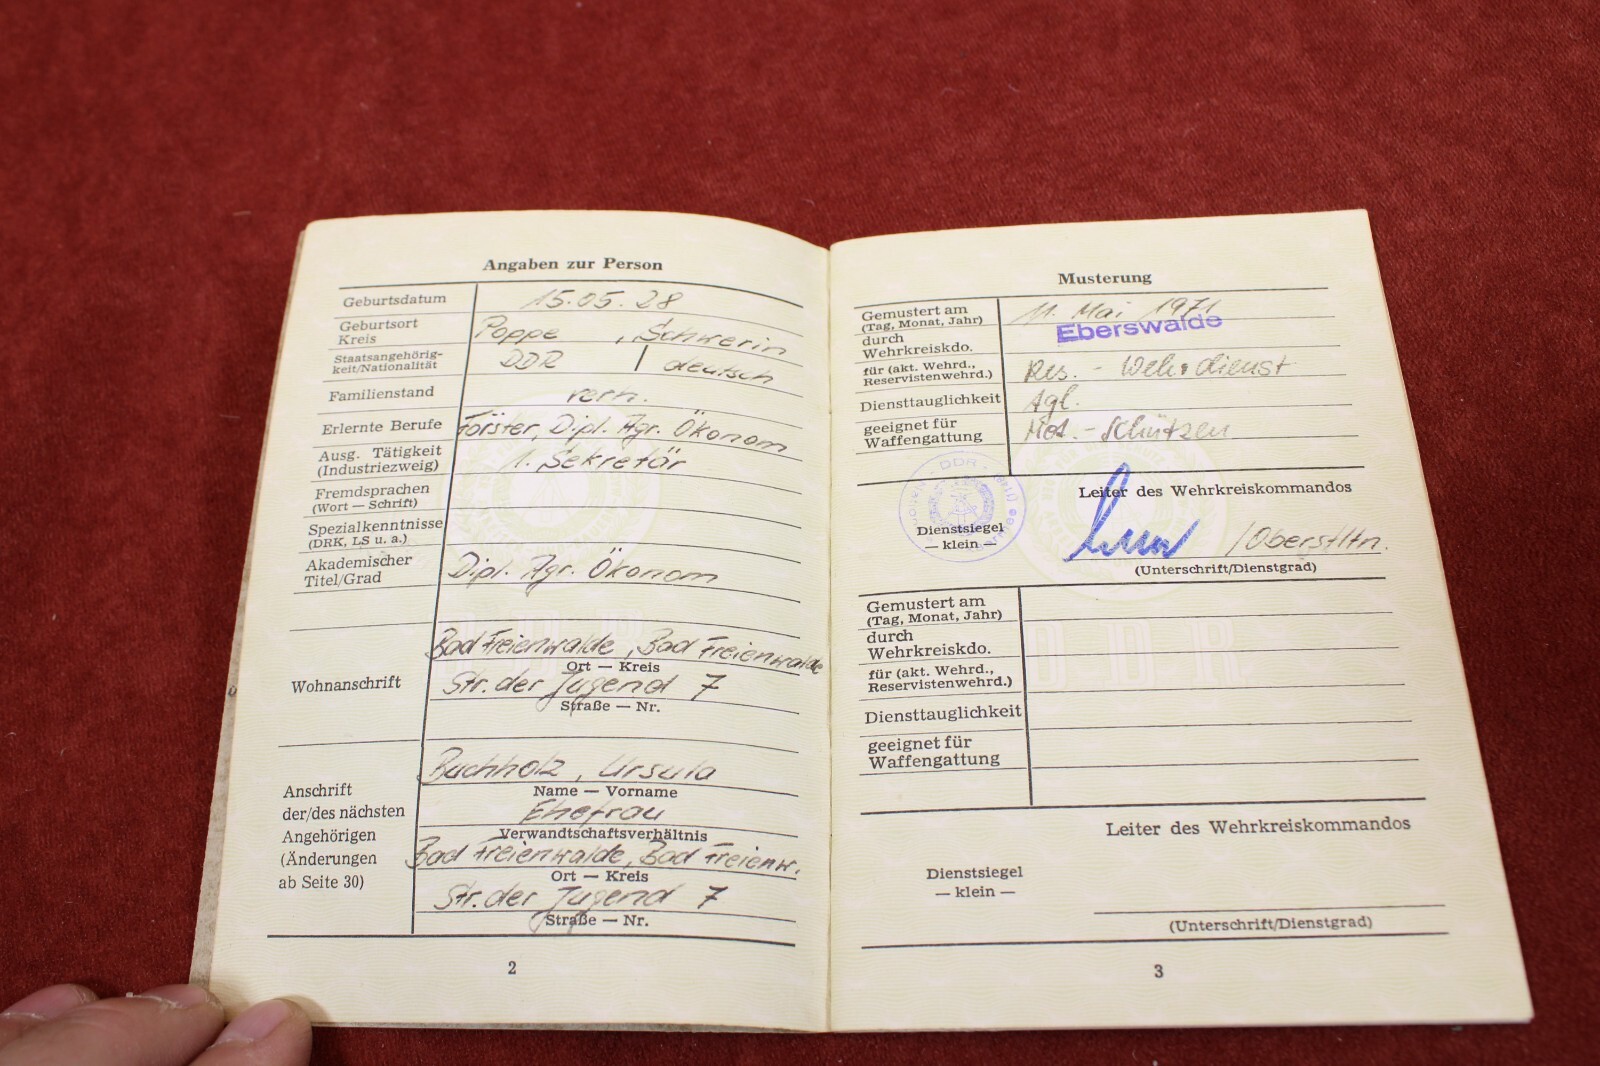 Angaben zur Person
Geburtsdatum 15.05.28
Geburtsort
Kreis Poppe, Schwerin
Staatsangehörig-
keit/Nationalität DDR | deutsch
Familienstand verh.
Erlernte Berufe Förster, Dipl. Agr. Ökonom
Ausg. Tätigkeit
(Industriezweig) 1. Sekretär
Fremdsprachen
(Wort — Schrift)
Spezialkenntnisse
(DRK, LS u. a.)
Akademischer
Titel/Grad Dipl. Agr. Ökonom
Bad Freienwalde, Bad Freienwalde
Ort — Kreis
Wohnanschrift Str. der Jugend 7
Straße — Nr.
Buchholz, Ursula
Anschrift Name — Vorname
der/des nächsten Ehefrau
Angehörigen Verwandtschaftsverhältnis
(Änderungen Bad Freienwalde, Bad Freienw.
ab Seite 30) Ort — Kreis
Str. der Jugend 7
Straße — Nr.
2
Musterung
Gemustert am
(Tag, Monat, Jahr) 11. Mai 1971
durch
Wehrkreiskdo. Eberswalde
für (akt. Wehrd.,
Reservistenwehrd.) Res. - Wehrdienst
Diensttauglichkeit tgl.
geeignet für
Waffengattung Mot. - Schützen
DDR
Leiter des Wehrkreiskommandos
Dienstsiegel
— klein — /Oberstltn.
(Unterschrift/Dienstgrad)
Gemustert am
(Tag, Monat, Jahr)
durch
Wehrkreiskdo.
für (akt. Wehrd.,
Reservistenwehrd.)
DDR
Diensttauglichkeit
geeignet für
Waffengattung
Leiter des Wehrkreiskommandos
Dienstsiegel
— klein —
(Unterschrift/Dienstgrad)
3